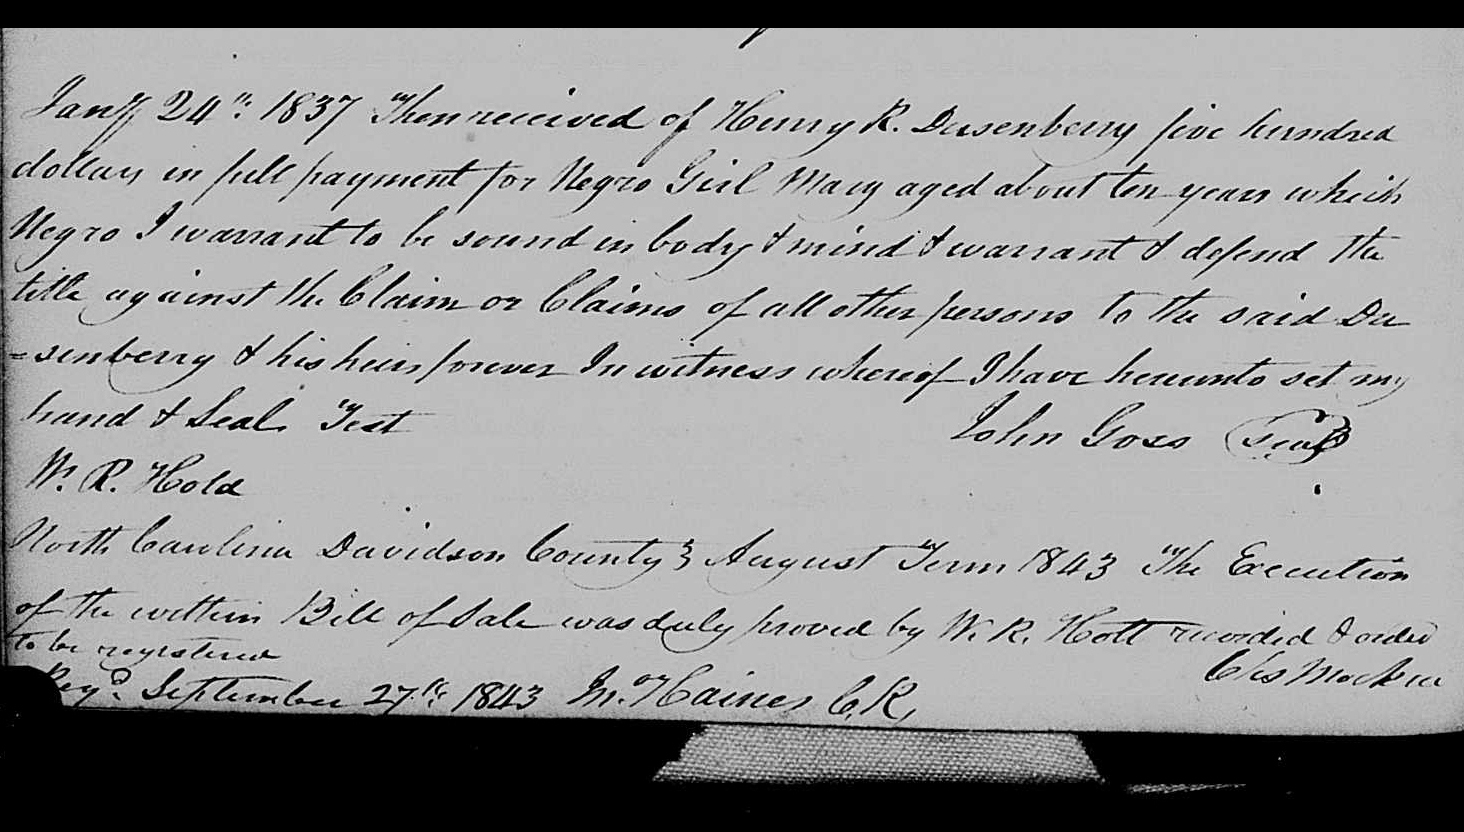 Jany 24th 1837 Then received of Henry R. Dusenberry five hundred
dollars in full payment for Negro Girl Mary aged about ten years which
Negro I warrant to be sound in body & mind & warrant & defend the
title against the Claim or Claims of all other persons to the said Du
=senberry & his heirs forever In witness whereof I have hereunto set my
hand & Seal. Test John Goss Seal
W. R. Hold
North Carolina Davidson County } August Term 1843 The Execution
of the within Bill of Sale was duly proved by W. R. Holt recorded & order
to be registered
Chs Mock
Regd September 27th 1843 M. Haines C.R,